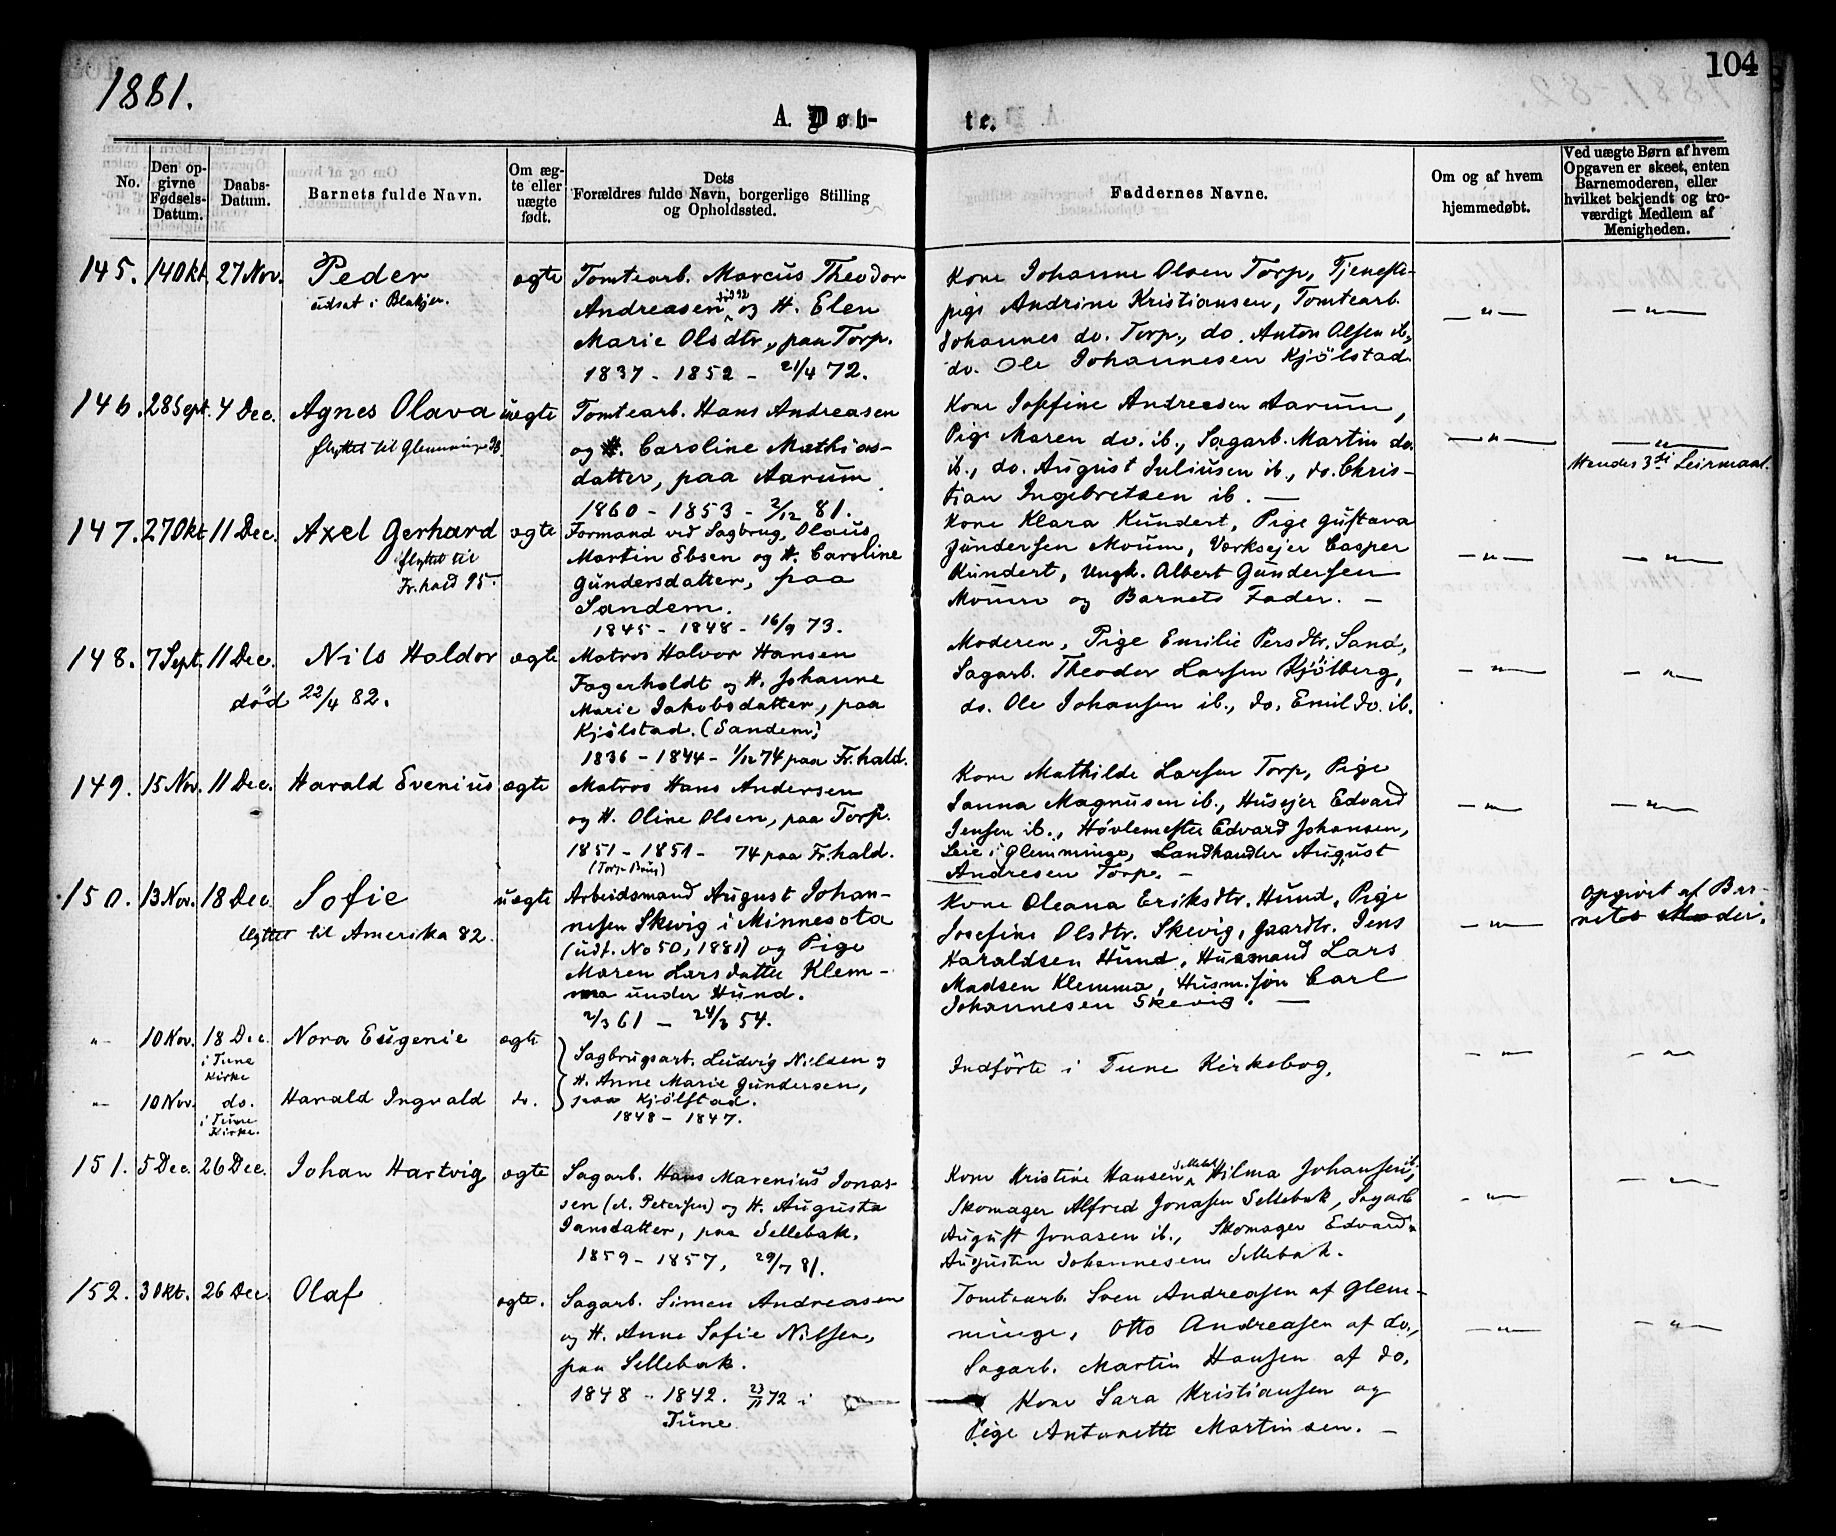 1881.
104
A. Døb-
te.
No.
Den op-
givne
Fødsels-
Datum.
Daabs-
Datum.
Barnets fulde Navn.
Om æg-
te eller
uægte
født.
Dets
Forældres fulde Navn, borgerlige Stilling
og Opholdssted.
Faddernes Navne.
Om og af hvem
hjemmedøbt.
Ved uægte Børn af hvem
Opgaven er skeet, enten
Barnemoderen, eller
hvilket bekjendt og tro-
værdigt Medlem af
Menigheden.
145. 14 Okt. 27 Nov. Peder ægte
udsat i Blakjer.
Tomtearb. Marcus Theodor
Andreasen død 92 og H. Elen
Marie Olsdtr., paa Torp.
1837 - 1852 - 21/4 72.
Kone Johanne Olsen Torp, Tjeneste-
pige Andrine Kristiansen, Tomtearb.
Johannes do. Torp., do. Anton Olsen ib.,
do. Ole Johannesen Kjölstad.
— " —
— " —
146. 28 Sept. 4 Dec. Agnes Olava uægte
flyttet til Glemminge
Tomtearb. Hans Andreasen
og H. Caroline Mathias-
datter, paa Aarum.
1860 - 1853 - 2/12 81.
Kone Josefine Andreesen Aarum,
Pige Maren do. ib., Sagarb. Martin do.
ib., do. August Juliusen ib., do. Chris-
tian Ingebretsen ib. —
— " —
— " —
Hendes 3die Leirmaal.
147. 27 Okt. 11 Dec. Axel Gerhard ægte
flyttet til
Fr.hald 95.
Formand ved Sagbrug, Olaus
Martin Ebsen og H. Caroline
Gundersdatter, paa
Sandem.
1845 - 1848 - 16/9 73.
Kone Klara Kundert, Pige Gustava
Gundersen Moum, Værksejer Casper
Kundert, Ungk. Albert Gundersen
Moum og Barnets Fader. —
— " —
— " —
148. 7 Sept. 11 Dec. Nils Haldor ægte
död 22/4 82.
Matros Halvor Hansen
Fagerholdt og H. Johanne
Marie Jakobsdatter, paa
Kjölstad. (Sandem)
1836 - 1844 - 1/12 74 paa Fr.hald.
Moderen, Pige Emilie Persdtr. Sand,
Sagarb. Theodor Larsen Kjölberg,
do. Ole Johansen ib., do. Emil do. ib.
— " —
— " —
149. 15 Nov. 11 Dec. Harald Evenius ægte
Matros Hans Andersen
og H. Oline Olsen, paa Torp.
1851 - 1851 - 74 paa Fr.hald.
(Torp Brug)
Kone Mathilde Larsen Torp, Pige
Janna Magnusen ib., Husejer Edvard
Jensen ib., Hövlemester Edvard Johansen,
Leie i Glemminge, Landhandler August
Andresen Torp. —
— " —
— " —
150. 13 Nov. 18 Dec. Sofie uægte
flyttet til Amerika 82.
Arbeidsmand August Johan-
nesen Skevig i Minnesota
(udt. No 50, 1881) og Pige
Maren Larsdatter Klem-
ma under Hund.
2/3 61 — 24/3 54.
Kone Oleana Eriksdtr. Hund, Pige
Josefine Olsdtr. Skevig, Gaardbr. Jens
Haraldsen Hund, Husmand Lars
Madsen Klemma, Husm.søn Carl
Johannesen Skevig. —
— " —
Opgivet af Bar-
nets Moder.
" 10 Nov. 18 Dec. Nora Eugenie ægte
i Tune
Kirke
Sagbrugsarb. Ludvig Nilsen og
H. Anne Marie Gundersen,
paa Kjölstad.
1848 - 1847.
Indförte i Tune Kirkebog.
— " —
— " —
" 10 Nov. do. Harald Ingvald do.
i Tune
Kirke.
151. 5 Dec. 26 Dec. Johan Hartvig ægte
Sagarb. Hans Marenius Jonas-
sen (d. Petersen) og H. Augusta
Jansdatter, paa Sellebak.
1859 - 1857, 29/7 81.
Kone Kristine Hansen Sellebak, Hilma Johansen ib.,
Skomager Alfred Jonasen Sellebak, Sagarb
August Jonasen ib., Skomager Edvard
Augustin Johannesen Sellebak.
— " —
— " —
152. 3 Okt. 26 Dec. Olaf ægte.
Sagarb. Simen Andreasen
og H. Anne Sofie Nilsen,
paa Sellebak.
1848 - 1842. 23/11 72 i
Tune
Tomtearb. Sven Andreasen af Glem-
minge, Otto Andreasen af do.,
Sagarb. Martin Hansen af do.
Kone Sara Kristiansen og
Pige Antonette Martinsen. —
— " —
— " —